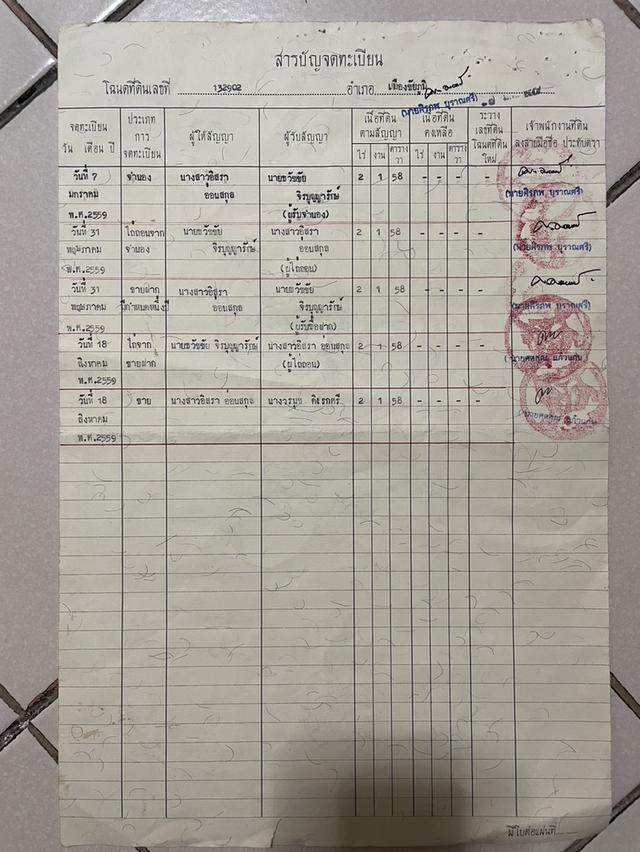 สารบัญจดทะเบียน
โฉนดที่ดินเลขที่ 132902 อำเภอ เมืองชัยภูมิ
(นายศิรภพ บุราณศรี)
จดทะเบียน วัน เดือน ปี ประเภทการจดทะเบียน ผู้ให้สัญญา ผู้รับสัญญา เนื้อที่ดินตามสัญญา เนื้อที่ดินคงเหลือ ระวาง เลขที่ดิน โฉนดที่ดินใหม่ เจ้าพนักงานที่ดิน ลงลายมือชื่อ ประทับตรา
ไร่ งาน ตารางวา ไร่ งาน ตารางวา
วันที่ 7 จำนอง นางสาวอิสรา นายธวัชชัย 2 1 58 - - - -
มกราคม อ่อนสกุล จิรบุญญารักษ์ (นายศิรภพ บุราณศรี)
พ.ศ.2559 (ผู้รับจำนอง)
วันที่ 31 ไถ่ถอนจาก นายธวัชชัย นางสาวอิสรา 2 1 58 - - - -
พฤษภาคม จำนอง จิรบุญญารักษ์ อ่อนสกุล (นายศิรภพ บุราณศรี)
พ.ศ.2559 (ผู้ไถ่ถอน)
วันที่ 31 ขายฝาก นางสาวอิสรา นายธวัชชัย 2 1 58 - - - -
พฤษภาคม มีกำหนดหนึ่งปี อ่อนสกุล จิรบุญญารักษ์ (นายศิรภพ บุราณศรี)
พ.ศ.2559 (ผู้รับซื้อฝาก)
วันที่ 18 ไถ่จาก นายธวัชชัย จิรบุญญารักษ์ นางสาวอิสรา อ่อนสกุล 2 1 58 - - - -
สิงหาคม ขายฝาก (ผู้ไถ่ถอน)
พ.ศ.2559
วันที่ 18 ขาย นางสาวอิสรา อ่อนสกุล นางวรนุช 2 1 58 - - - -
สิงหาคม
พ.ศ.2559
มีใบต่อแผ่นที่